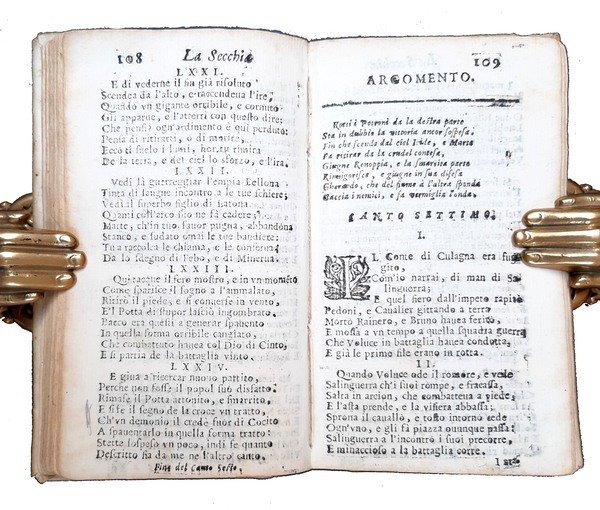 108 La Secchia
LXXI.
E di vederne il fin già risoluto
Scendea da l'alto, e raccendeua l'ire,
Quando vn gigante orribile, e cornuto
Gli apparue, e l'atterrì con questo dire:
Che pensi ogn'ardimento e qui perduto:
Pensa di ritirarti, o di morire,
Ecco ti suelo i lumi, hor tu rimira
De la terra, e del ciel lo sforzo, e l'ira.
LXXII.
Vedi là guerreggiar l'empia Bellona
Tinta di sangue incontro a le tue schiere;
Vedi il superbo figlio di Latona
Quanti coll'arco suo ne fà cadere;
Marte, ch'in tuo fauor pugna, abbandona
Stanco, e sudato omai le tue bandiere:
Tu a raccolta le chiama, e le conserua
Da lo sdegno di Febo, e di Minerua.
LXXIII.
Quì tacque il fero mostro, e in vn momẽto
Come sparisce il sogno a l'ammalato,
Ritirò il piede, e si conuerse in vento,
E'l Potta di stupor lasciò ingombrato.
Bacco era quelli a generar spauento
In quella forma orribile cangiato,
Che combattuto hauea col Dio di Cinto,
E si partia de la battaglia vinto.
LXXIV.
E giua a ricercar nuouo partito,
Perche non fosse il popol suo disfatto:
Rimase il Potta attonito, e smarrito,
E si fe il segno de la croce vn tratto,
Ch'vn demonio il credè fuor di Cocito
A spauentarlo in quella forma tratto:
Stette sospeso vn poco, indi fe quanto
Descritto fia da me ne l'altro canto.
Fine del Canto Sesto.
109
ARGOMENTO.
Rotti i Petroni da la destra parte
Sta in dubbio la vittoria ancor sospesa;
Fin che scenda dal ciel Iride, e Marte
Fa ritirar da la crudel contesa,
Giugne Renoppia, e la smarrita parte
Rinuigorisce, e giugne in sua difesa
Gherardo, che del fiume a l'altra sponda
Caccia i nemici, e fa vermiglia l'onda.
CANTO SETTIMO,
I.
IL Conte di Culagna era fug
gito,
Com'io narrai, di man di Sa
linguerra;
E quel fiero dall'impeto rapito
Pedoni, e Caualier gittando a terra
Morto Rainero, e Bruno hauea ferito,
E mossa a vn tempo a quella squadra guerra
Che Voluce in battaglia hauea condotta,
E già le prime file erano in rotta.
II.
Quando Voluce ode il romore, e vede
Salinguerra ch'i suoi rompe, e fracassa,
Salta in arcion, che combatteua a piede;
E l'asta prende, e la visiera abbassa;
Sprona il cauallo, e tosto intorno cede
Ogn'vno, e gli fà piazza ouunque passa:
Salinguerra a l'incontro i suoi precorre,
E minaccioso a la battaglia corre.